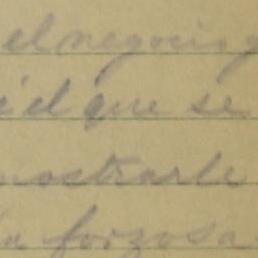 el negocio y
el que se
mostrarle
la forzosa